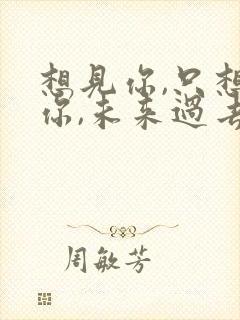 想見你,只想
你,未来過去
周敏芳